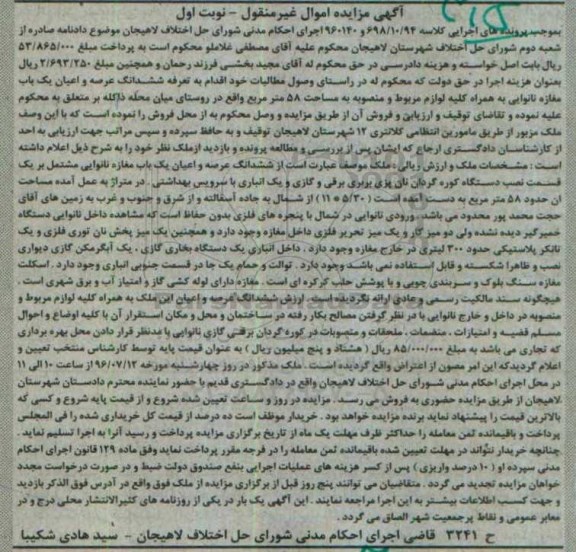 آگهی مزایده اموال غیرمنقول - نوبت اول
بموجب پرونده های اجرایی کلاسه ۶۹۸/۱۰/۹۴ و ۹۶۰۱۴۰ اجرای احکام مدنی شورای حل اختلاف لاهیجان موضوع دادنامه صادره از
شعبه دوم شورای حل اختلاف شهرستان لاهیجان محکوم علیه آقای مصطفی غلاملو محکوم است به پرداخت مبلغ ۵۳/۸۶۵/۰۰۰
ریال بابت اصل خواسته و هزینه دادرسی در حق محکوم له آقای مجید بخشی فرزند رحمان و همچنین مبلغ ۲/۶۹۳/۲۵۰ ریال
بعنوان هزینه اجرا در حق دولت که محکوم له در راستای وصول مطالبات خود اقدام به تعرفه ششدانگ عرصه و اعیان یک باب
مغازه نانوایی به همراه کلیه لوازم مربوط و منصوبه به مساحت ۵۸ متر مربع واقع در روستای میان محله داکله بر متعلق به محکوم
علیه نموده و تقاضای توقیف و ارزیابی و فروش آن از طریق مزایده و وصل محکوم به از محل فروش را نموده است که با این وصف
ملک مزبور از طریق مامورین انتظامی کلانتری ۱۲ شهرستان لاهیجان توقیف و به حافظ سپرده و سپس مراتب جهت ارزیابی به احد
از کارشناسان دادگستری ارجاع که ایشان پس از بررسی و مطالعه پرونده و بازدید ازملک نظر خود را به شرح ذیل اعلام داشته
است : مشخصات ملک و ارزش ریالی : ملک موصوف عبارت است از ششدانگ عرصه و اعیان یک باب مغازه نانوایی مشتمل بر یک
قسمت نصب دستگاه کوره گردان نان پزی بربری برقی و گازی و یک انباری با سرویس بهداشتی . در متراژ به عمل آمده مساحت
آن حدود ۵۸ متر مربع به دست آمده است ( ۵/۳۰ * ۱۱ ) از شمال به جاده آسفالته و از شرق و جنوب و غرب به زمین های آقای
حجت محمد پور محدود می باشد . ورودی نانوایی در شمال با پنجره های فلزی بدون حفاظ است که مشاهده داخل نانوایی دستگاه
خمیرگیر دیده نشده ولی دو میز کار و یک میز تحریر فلزی داخل مغازه وجود دارد و همچنین یک میز پخش نان توری فلزی و یک
تانکر پلاستیکی حدود ۳۰۰ لیتری در خارج مغازه وجود دارد . داخل انباری یک دستگاه بخاری گازی ، یک آبگرمکن گازی دیواری
نصب و ظاهرا شکسته و قابل استفاده نمی باشد وجود دارد . توالت و حمام یک جا در قسمت جنوبی انباری وجود دارد . اسکلت
مغازه سنگ بلوک و سربندی چوبی و با پوشش حلب کرکره ای است . مغازه دارای لوله کشی گاز و امتیاز آب و برق شهری است .
هیچگونه سند مالکیت رسمی و عادی ارائه نگردیده است . ارزش ششدانگ عرصه و اعیان این ملک به همراه کلیه لوازم مربوط و
منصوبه در داخل و خارج نانوایی با در نظر گرفتن مصالح بکار رفته در ساختمان و محل و مکان استقرار آن با کلیه اوضاع و احوال
مسلم قضیه و امتیازات ، منضمات ، ملحقات و متصوبات در کوره گردان برقی گازی نانوایی با مدنظر قرار دادن محل بهره برداری
که تجاری می باشد به مبلغ ۸۵/۰۰۰/۰۰۰ ریال ( هشتاد و پنج میلیون ریال ) به عنوان قیمت پایه توسط کارشناس منتخب تعیین و
اعلام گردیدکه این امر مصون از اعتراض واقع گردیده است . ملک مذکور در روز چهارشنبه مورخه ۹۶/۰۷/۱۲ از ساعت ۱۰ الی ۱۱
در محل اجرای احکام مدنی شورای حل اختلاف لاهیجان واقع در دادگستری قدیم با حضور نماینده محترم دادستان شهرستان
لاهیجان از طریق مزایده حضوری به فروش می رسد . مزایده در روز و ساعت تعیین شده شروع و از قیمت پایه شروع و کسی که
بالاترین قیمت را پیشنهاد نماید برنده مزایده خواهد بود . خریدار موظف است ده درصد از قیمت کل خریداری شده را فی المجلس
پرداخت و باقیمانده ثمن معامله را حداکثر ظرف مهلت یک ماه از تاریخ برگزاری مزایده پرداخت و رسید آنرا به اجرا تسلیم نماید .
چنانچه خریدار نتواند در مهلت تعیین شده باقیمانده ثمن معامله را در فرجه مقرر پرداخت نماید وفق ماده ۱۲۹ قانون اجرای احکام
مدنی سپرده او ( ۱۰ درصد واریزی ) پس از کسر هزینه های عملیات اجرایی بنفع صندوق دولت ضبط و در صورت درخواست مجدد
خواهان مزایده تجدید می گردد . متقاضیان می توانند پنج روز قبل از برگزاری مزایده از ملک فوق واقع در آدرس فوق الذکر بازدید
و جهت کسب اطلاعات بیشتر به این اجرا مراجعه نمایند . این آگهی یک بار در یکی از روزنامه های کثیرالانتشار محلی درج و در
معابر عمومی و نقاط پرجمعیت شهر الصاق می گردد .
ح ۳۲۴۱ قاضی اجرای احکام مدنی شورای حل اختلاف لاهیجان - سید هادی شکیبا